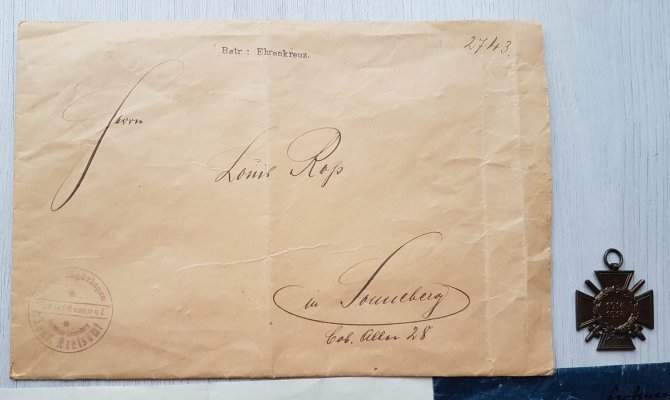 Betr : Ehrenkreuz.
2743
Herrn
Louis Roß
in Sonneberg
Cob. Allee 28
Thüringen
Kreisamt
1914
1918